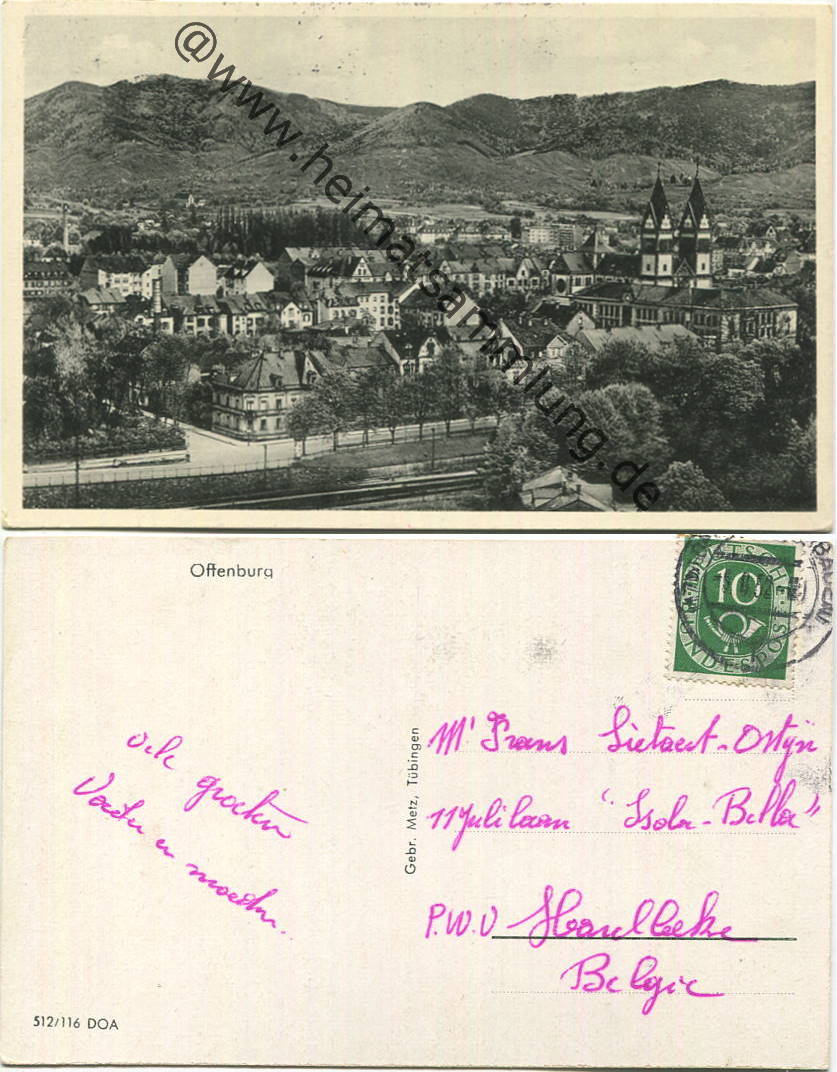 @www.heimatsammlung.de
Offenburg
10
DEUTSCHE
BUNDESPOST
vele groeten
Vader en moeder.
Gebr. Metz, Tübingen
Mr Frans Lietaert-Ostyn
11 Julilaan "Isola-Bella"
P.W.V Harelbeke
Belgie
512/116 DOA